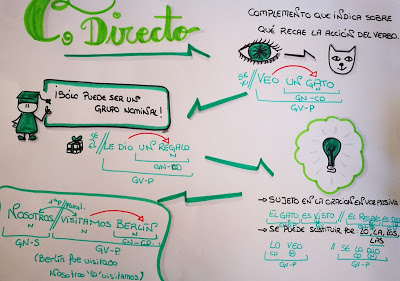 C. Directo
COMPLEMENTO QUE INDICA SOBRE
QUÉ RECAE LA ACCIÓN DEL VERBO.
SE
YO // VEO UN GATO
N
GN-CD
GV-P
¡SÓLO PUEDE SER UN
GRUPO NOMINAL!
SE
ÉL // LE DIO UN REGALO
N
GN-CD
GV-P
1ªp/plural.
NOSOTROS // VISITAMOS BERLÍN
N
N
GN-S
GN-CD
GV-P
(Berlín fue visitado
Nosotros "lo" visitamos)
→ SUJETO EN LA ORACIÓN EN VOZ PASIVA
EL GATO ES VISTO // EL REGALO ES DADO
→ SE PUEDE SUSTITUIR POR LO, LA, LOS,
LAS
LO VEO // SE LO DIO
CD
CD
GV-P
GV-P